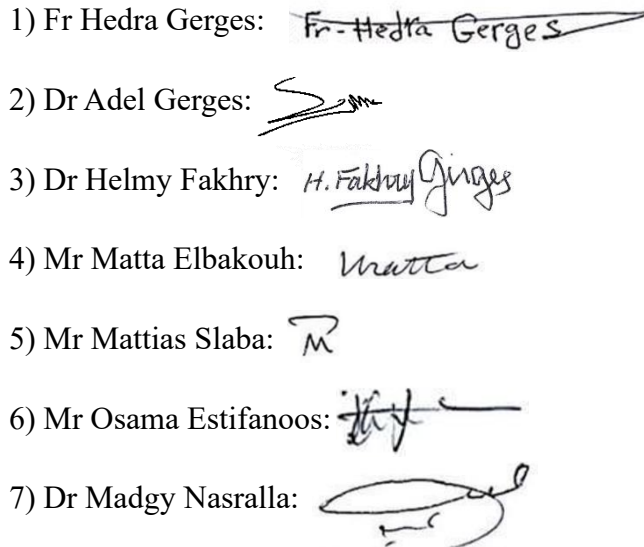 1) Fr Hedra Gerges: Fr-Hedra Gerges
2) Dr Adel Gerges:
3) Dr Helmy Fakhry: H. Fakhry Girges
4) Mr Matta Elbakouh: Matta
5) Mr Mattias Slaba: M
6) Mr Osama Estifanoos:
7) Dr Madgy Nasralla: